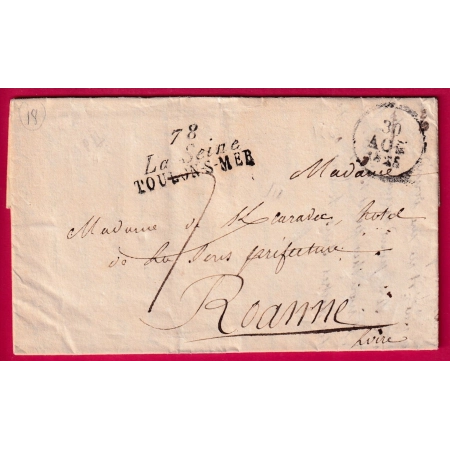 (18)
78
La Seine
TOULON-S-MER
30
AOUT
7
Madame
Madame de Kcaradec, hotel
de la Sous préfecture
Roanne
Loire